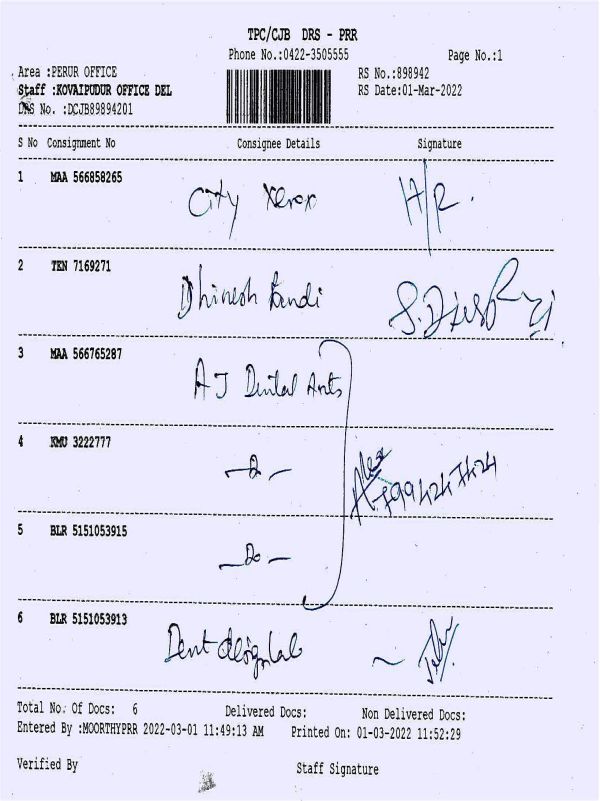 TPC/CJB DRS - PRR
Phone No.:0422-3505555 Page No.:1
Area :PERUR OFFICE RS No.:898942
Staff :KOVAIPUDUR OFFICE DEL RS Date:01-Mar-2022
DRS No. :DCJB89894201
S No Consignment No Consignee Details Signature
1 MAA 566858265 City Xerox H/R.
2 TEN 7169271 Dhinesh
3 MAA 566765287 AJ Dental Arts
4 KMU 3222777
5 BLR 5151053915 Do
6 BLR 5151053913 Dent
Total No. Of Docs: 6 Delivered Docs: Non Delivered Docs:
Entered By :MOORTHYPRR 2022-03-01 11:49:13 AM Printed On: 01-03-2022 11:52:29
Verified By Staff Signature